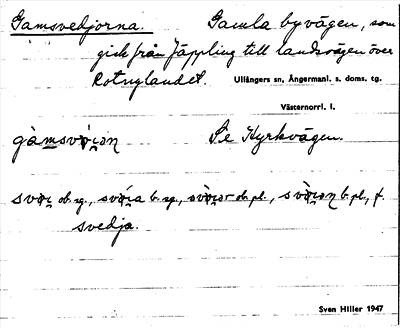 Gamsvedjorna. Gamla byvägen, som
gick från Jäppling till landsvägen över
Rotnylandet. Ullångers sn, Ångermanl. s. doms. tg.
Västernorrl. l.
Se Kyrkvägen.
ob. sg., b. sg., ob. pl., b. pl., f.
svedja.
Sven Hiller 1947